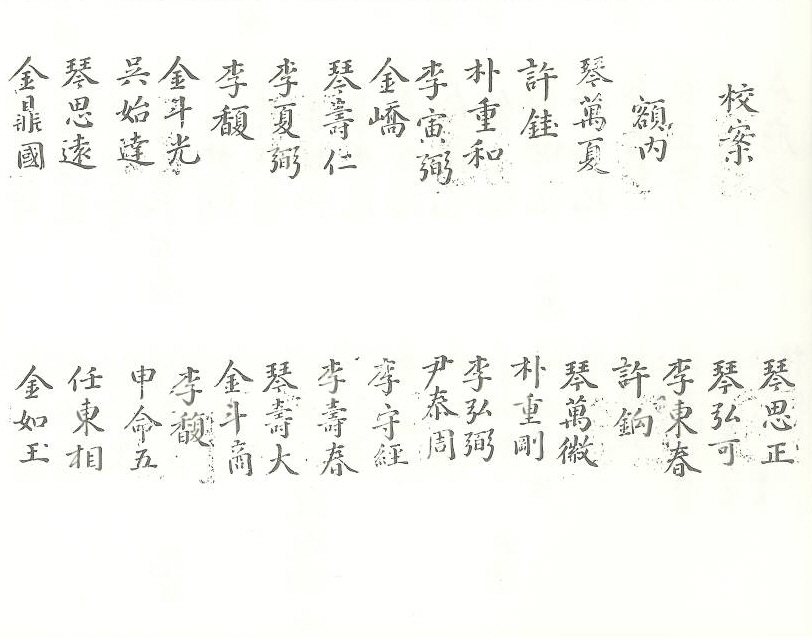 校案
額内
琴萬夏
許銈
朴重和
李寅弼
金嶠
琴壽仁
李夏弼
李馥
金斗光
吳始達
琴思遠
金鼎國
琴思正
琴弘可
李東春
許鈎
琴萬徽
朴重剛
李弘弼
尹泰周
李守經
李壽春
琴壽大
金斗商
李馥
申命五
任東相
金如玉